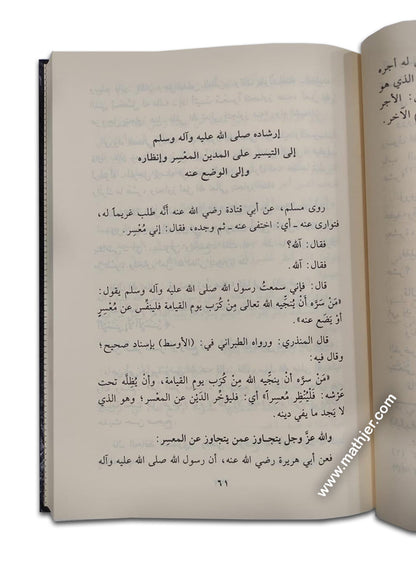 إرشاده صلى الله عليه وآله وسلم
إلى التيسير على المدين المعْسِر وإنظاره
وإلى الوضع عنه
روى مسلم، عن أبي قتادة رضي الله عنه أنَّه طلب غريماً له،
فتوارى عنه ـ أي: اختفى عنه ـ ثم وجده، فقال: إني مُعْسِر.
فقال: آلله؟
فقال: آلله.
قال: فإني سمعتُ رسول الله صلى الله عليه وآله وسلم يقول:
«مَنْ سَرَّه أنْ يُنَجِّيه الله تعالى مِنْ كُرَب يوم القيامة فليُنفِّس عن مُعْسِرٍ
أوْ يَضَع عنه».
قال المنذري: ورواه الطبراني في: (الأوسط) بإسناد صحيح؛
وقال فيه:
«مَنْ سرَّه أن ينجيه الله مِنْ كُرَب يوم القيامة، وأنْ يُظِلَّه تحت
عَرْشه: فَلْيُنْظِر مُعسِراً» أي: فليؤخِّر الدَّيْن عن المعسر؛ وهو الذي
لا يَجد ما يفي دينه.
والله عزَّ وجل يتجاوز عمن يتجاوز عن المعسر:
فعن أبي هريرة رضي الله عنه، أن رسول الله صلى الله عليه وآله
٦١
له أجره
الذي هو
: الأجر
الآخر.
www.mathjer.com